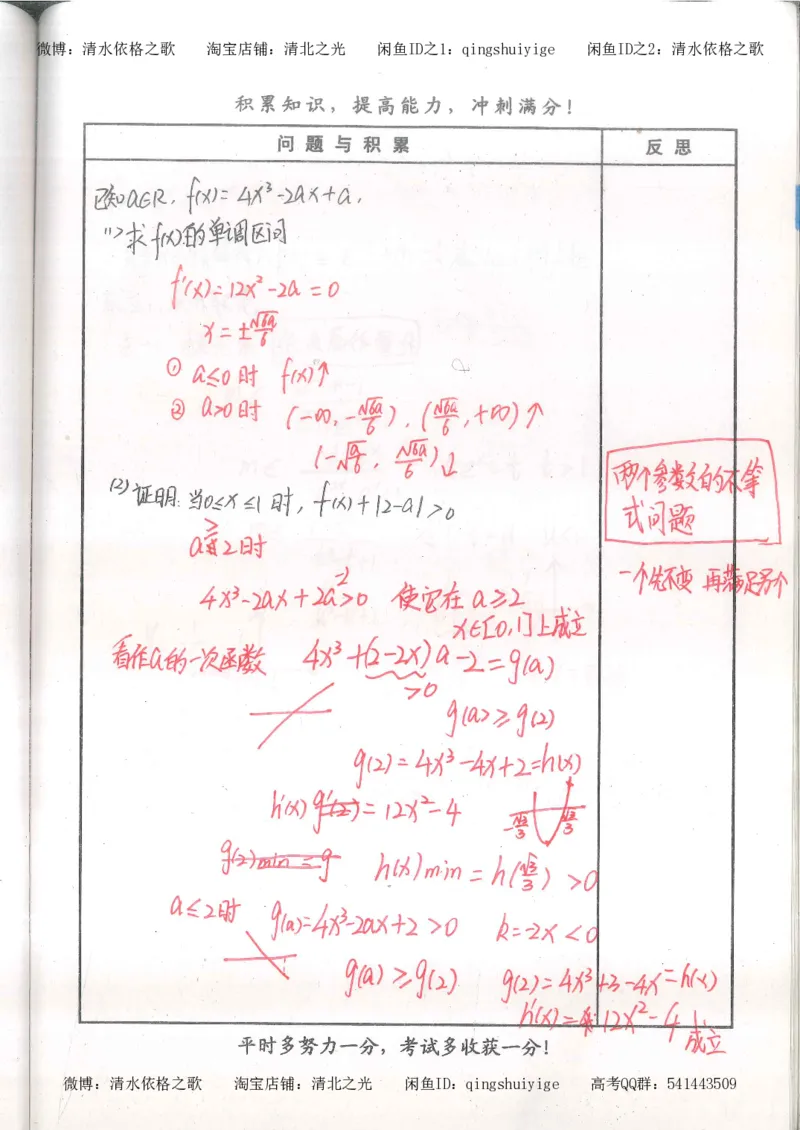 微博：清水依格之歌 淘宝店铺：清北之光 闲鱼ID之1：qingshuiyige 闲鱼ID之2：清水依格之歌
积累知识，提高能力，冲刺满分！
问题与积累 反思
已知a∈R，f(x)=4x³-2ax+a，
(1)求f(x)的单调区间
f'(x)=12x²-2a=0
x=±√6a/6
① a≤0时 f(x)↑
② a>0时 (-∞,-√6a/6),(√6a/6,+∞)↑
(-√a/6,√6a/6)↓
(2)证明:当0≤x≤1时，f(x)+|2-a|>0
a≥2时
使它在a≥2
x∈[0,1]上成立
看作a的一次函数 4x³+(2-2x)a-2=g(a)
>0
g(a)≥g(2)
g(2)=4x³-4x+2=h(x)
h'(x) g'(2)=12x²-4
-√3/3 √3/3
g(2)min=g h(x)min=h(√3/3)>0
a≤2时 g(a)=4x³-2ax+2>0 k=-2x<0
g(a)≥g(2) g(2)=4x³+3-4x=h(x)
成立
两个参数的不等
式问题
一个先不变 再满足另个
平时多努力一分，考试多收获一分！
微博：清水依格之歌 淘宝店铺：清北之光 闲鱼ID：qingshuiyige 高考QQ群：541443509